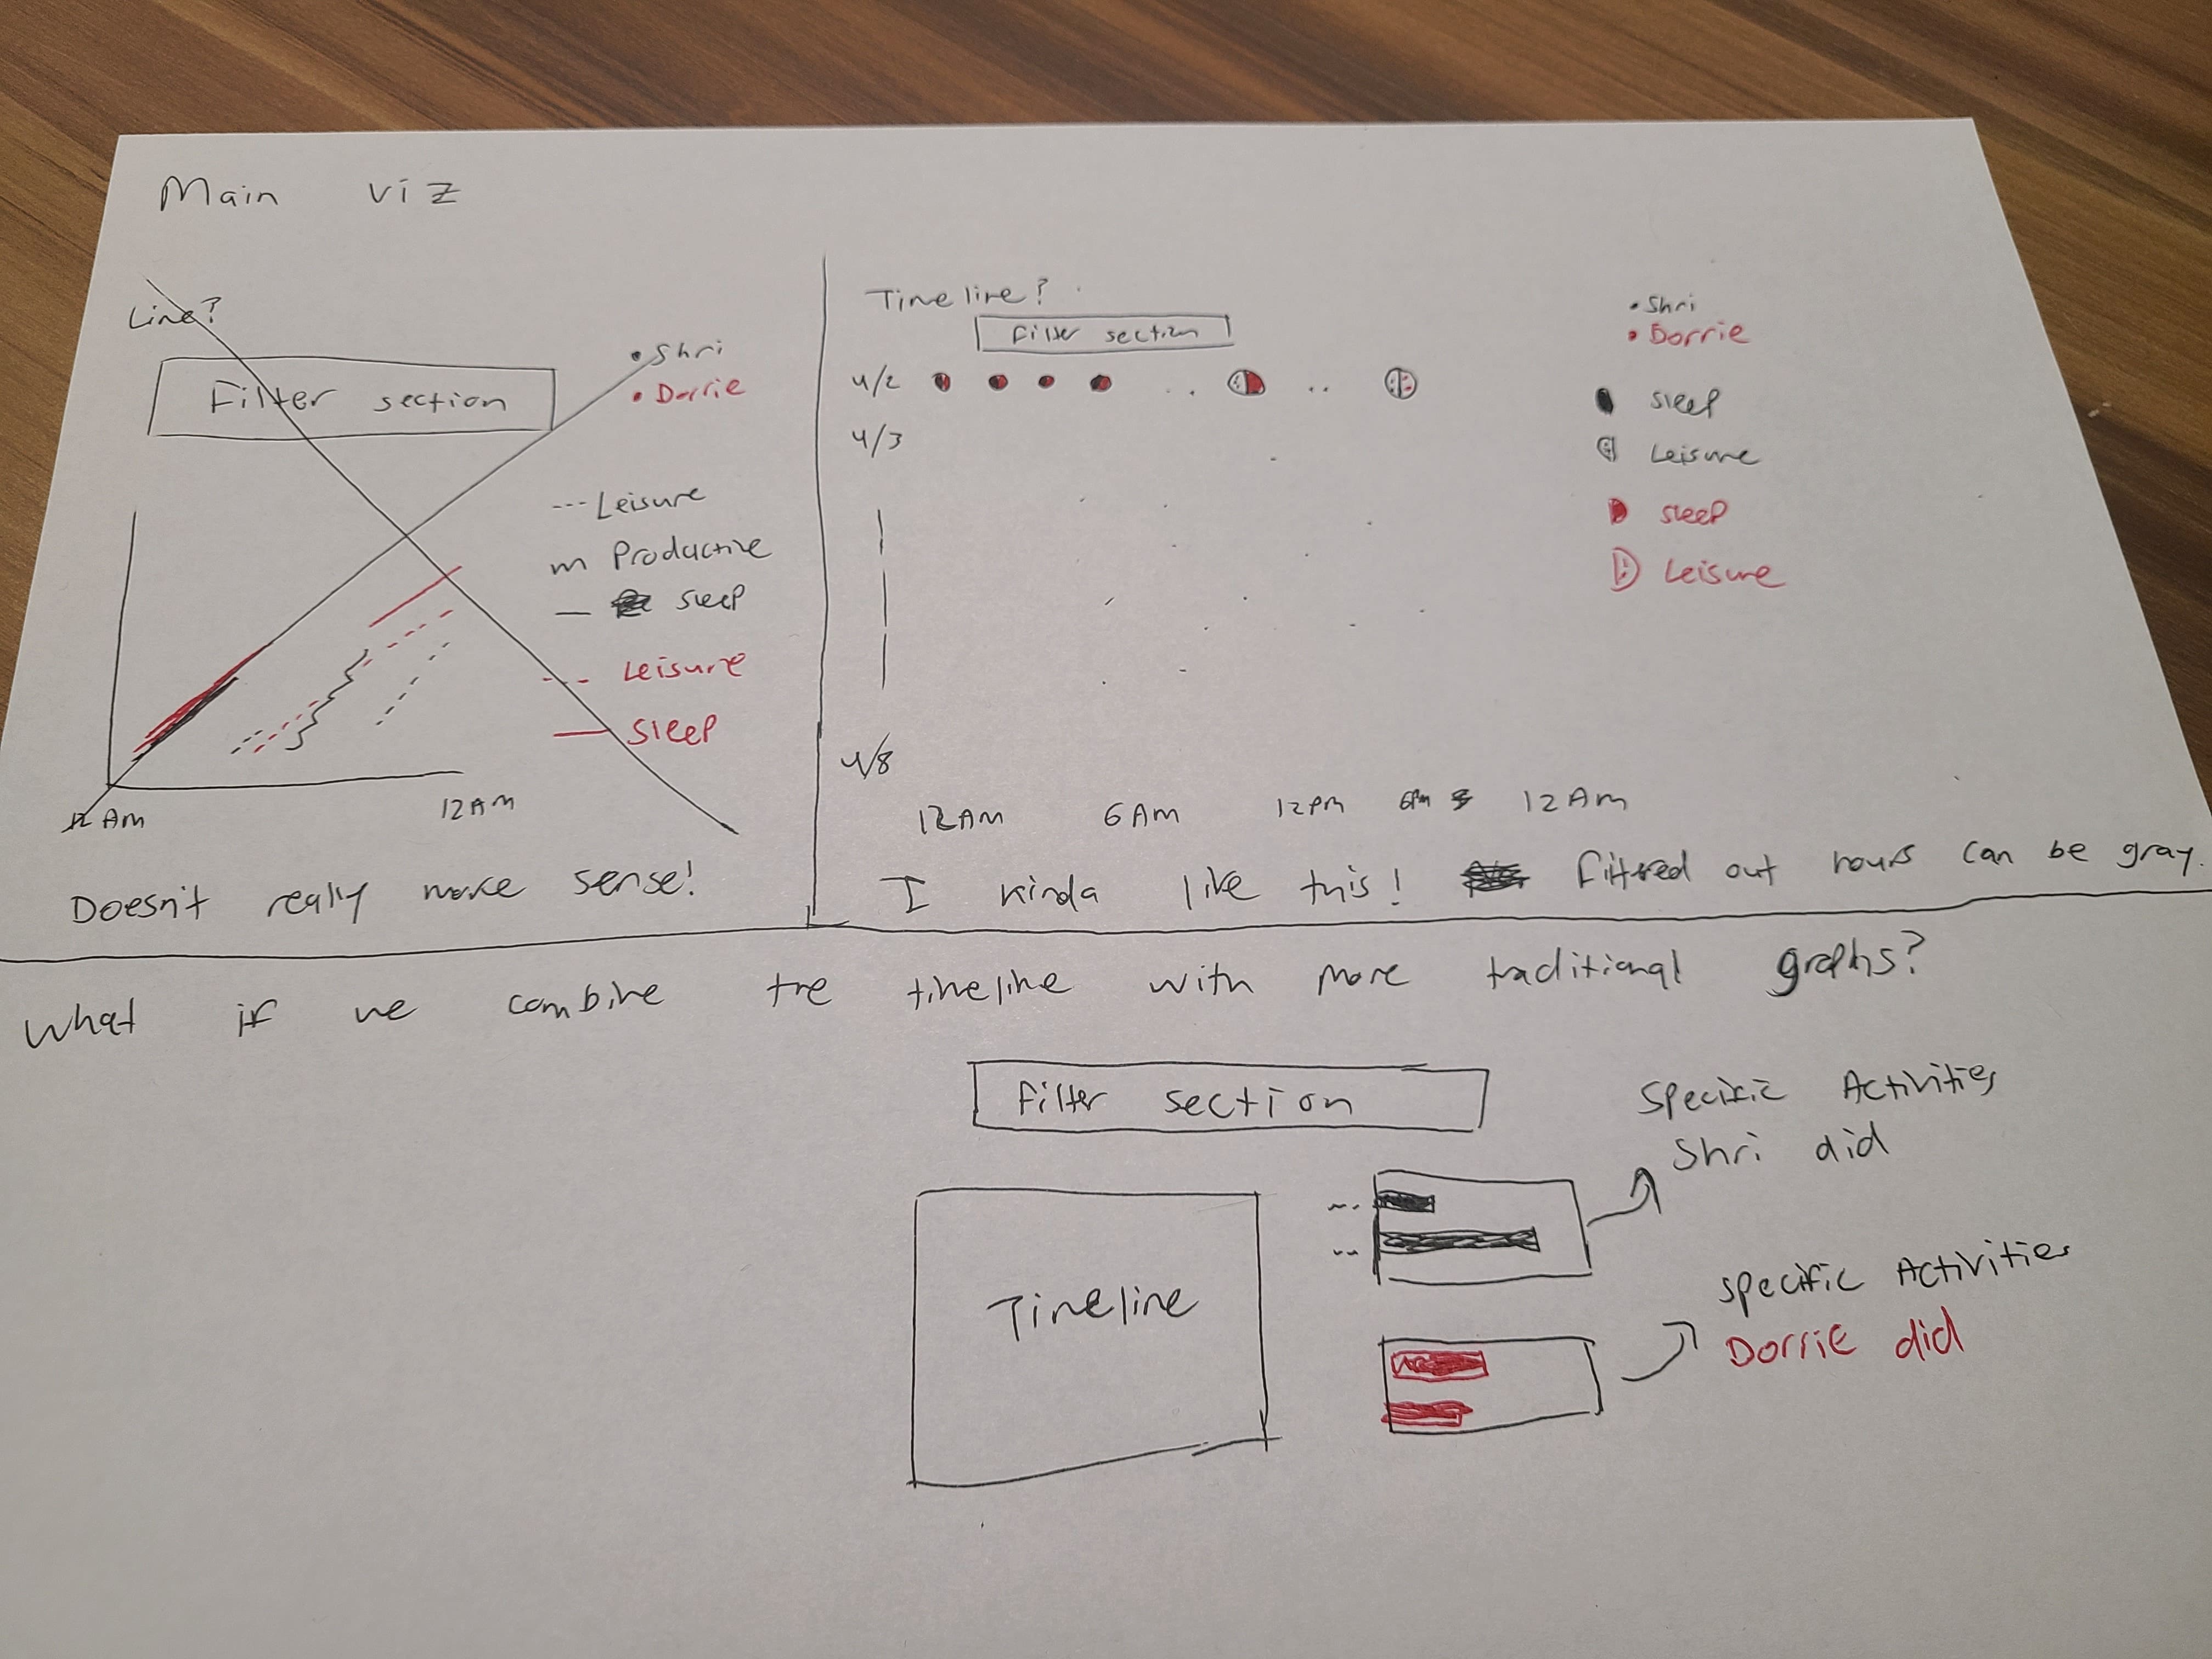 Main viz
Line?
Filter section
• Shri
• Dorrie
--- Leisure
m Productive
— sleep
--- Leisure
— Sleep
12 AM
12 AM
Doesn't really make sense!
Timeline?
Filter section
4/2
4/3
4/8
12AM 6AM 12PM 6PM 12AM
• Shri
• Dorrie
sleep
Leisure
sleep
Leisure
I kinda like this! filtered out hours can be gray.
What if we combine the timeline with more traditional graphs?
Filter section
Timeline
Specific Activities
Shri did
Specific Activities
Dorrie did